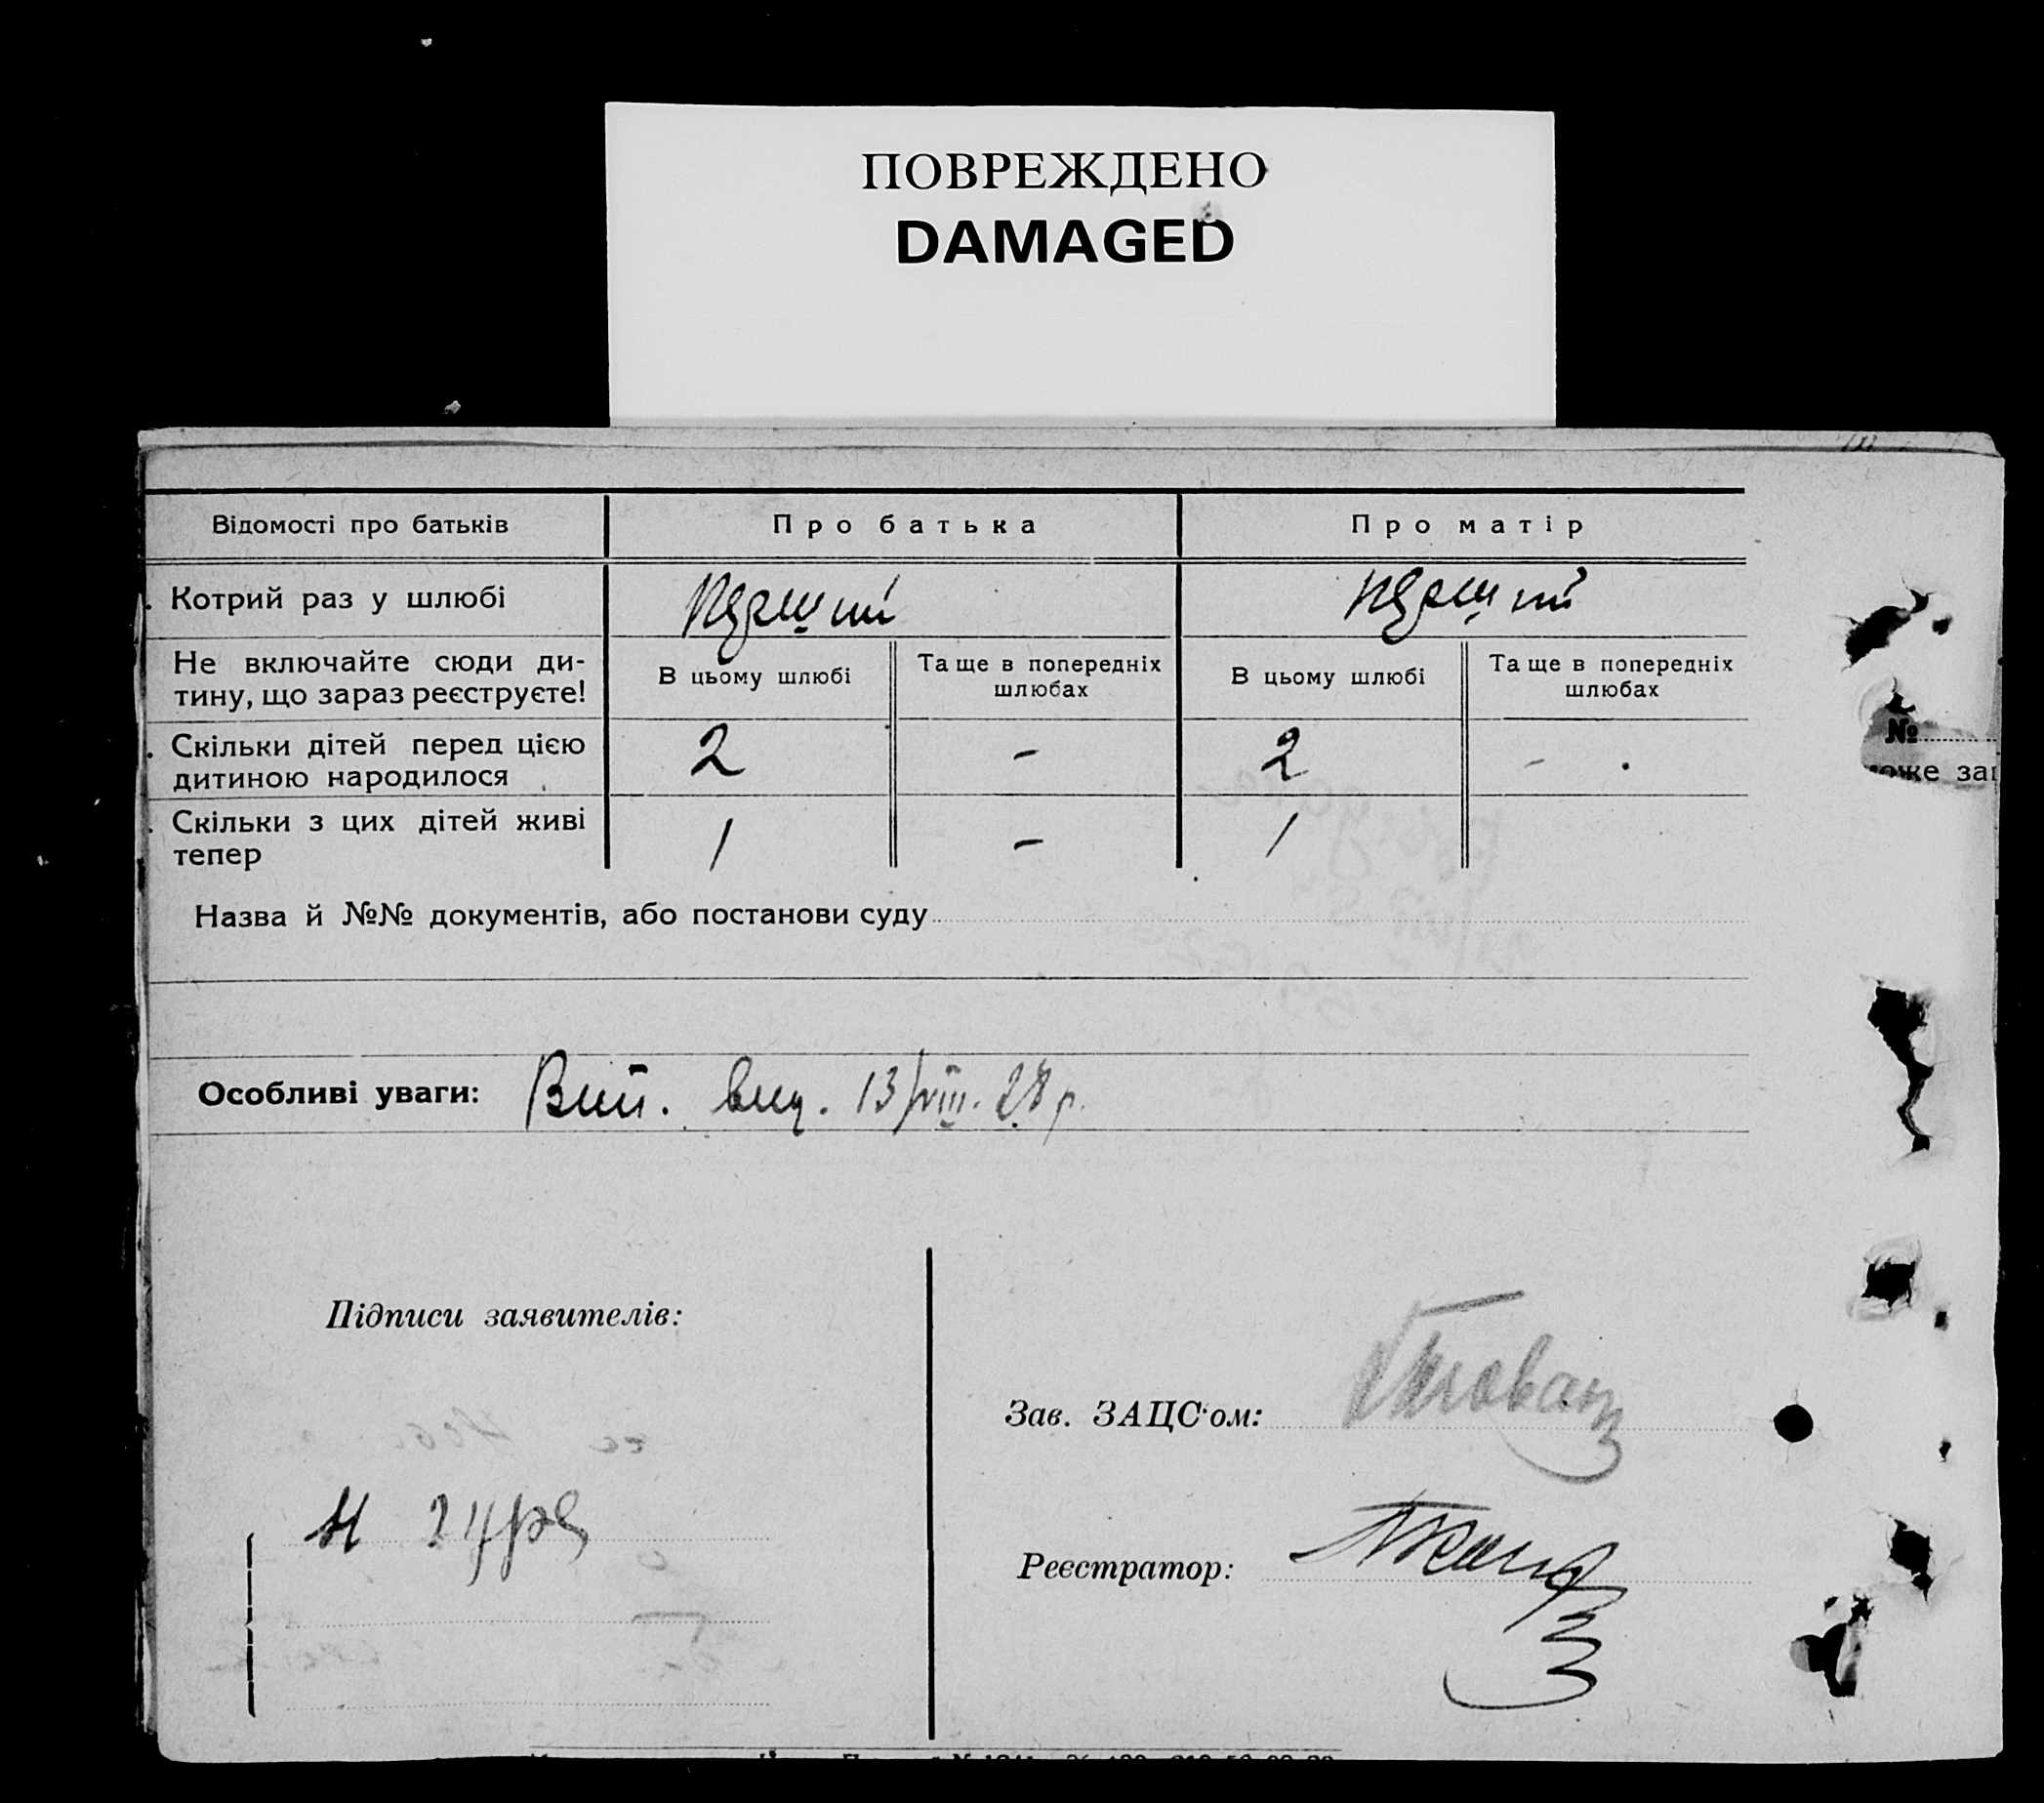 ПОВРЕЖДЕНО
DAMAGED
Відомості про батьків
Про батька
Про матір
Котрий раз у шлюбі
перший
перший
Не включайте сюди ди-
тину, що зараз реєструєте!
В цьому шлюбі
Та ще в попередніх
шлюбах
В цьому шлюбі
Та ще в попередніх
шлюбах
Скільки дітей перед цією
дитиною народилося
2
-
2
-
Скільки з цих дітей живі
тепер
1
-
1
№
Назва й №№ документів, або постанови суду
Особливі уваги: Вип. вид. 13/VIII. 28 р.
Підписи заявителів:
Зав. ЗАЦС'ом:
Реєстратор: